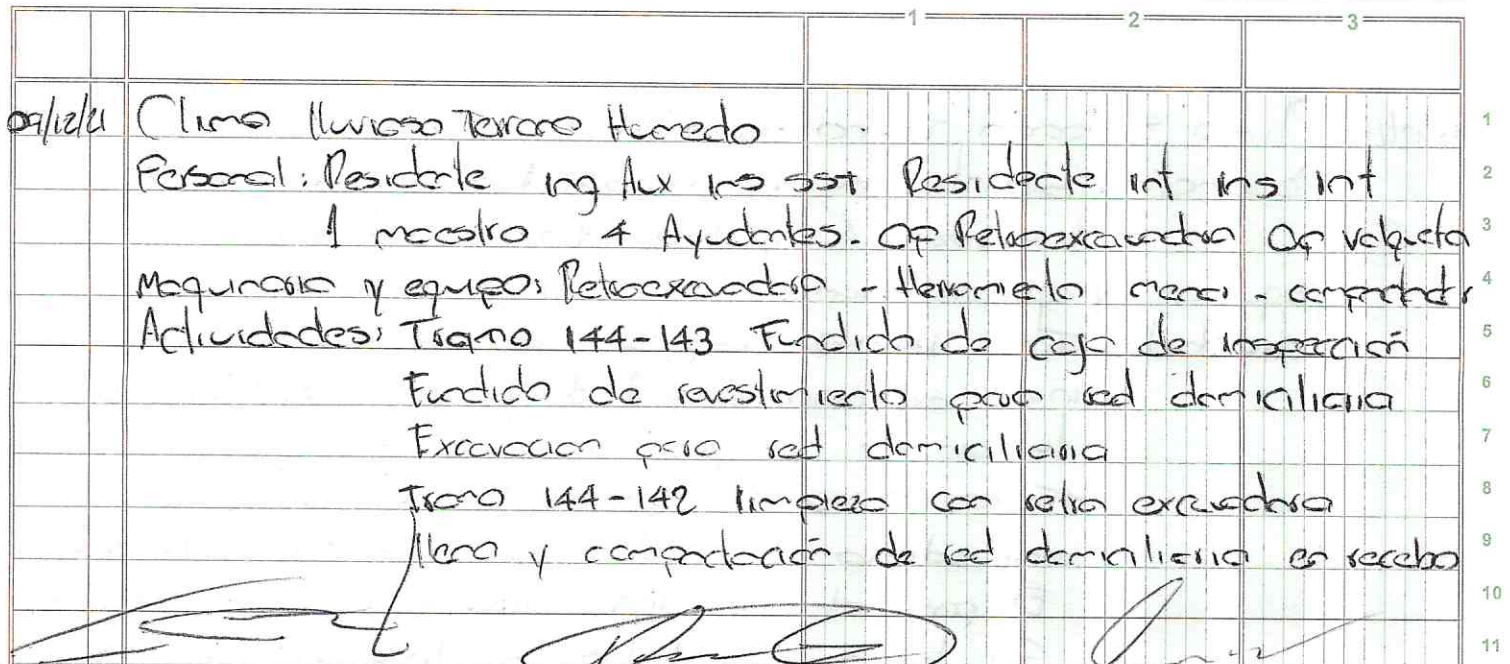 1 2 3
09/12/21 Clima lluvioso Terreno Humedo 1
Personal: Residente ing Aux ins SST Residente int ins int 2
1 maestro 4 Ayudantes - Op Retroexcavadora Op volqueta 3
Maquinaria y equipo: Retroexcavadora - Herramienta menor - compactador 4
Actividades: Tramo 144-143 Fundido de caja de inspección 5
Fundido de revestimiento para red domiciliaria 6
Excavacion para red domiciliaria 7
Tramo 144-142 limpieza con retro excavadora 8
lleno y compactación de red domiciliaria en recebo 9
10
11